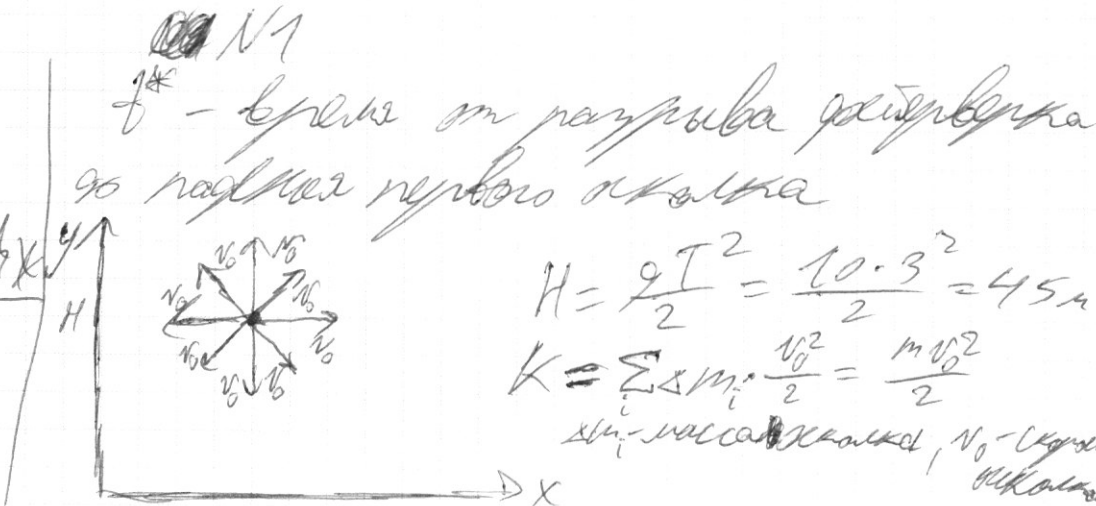 N1
t* - время от разрыва фейерверка
до падения первого осколка
y
H
v₀ v₀ v₀ v₀ v₀ v₀ v₀ v₀
x
H = gT²/2 = 10·3²/2 = 45м
K = Σᵢ Δmᵢ · v₀²/2 = mv₀²/2
Δmᵢ - масса осколка, v₀ -